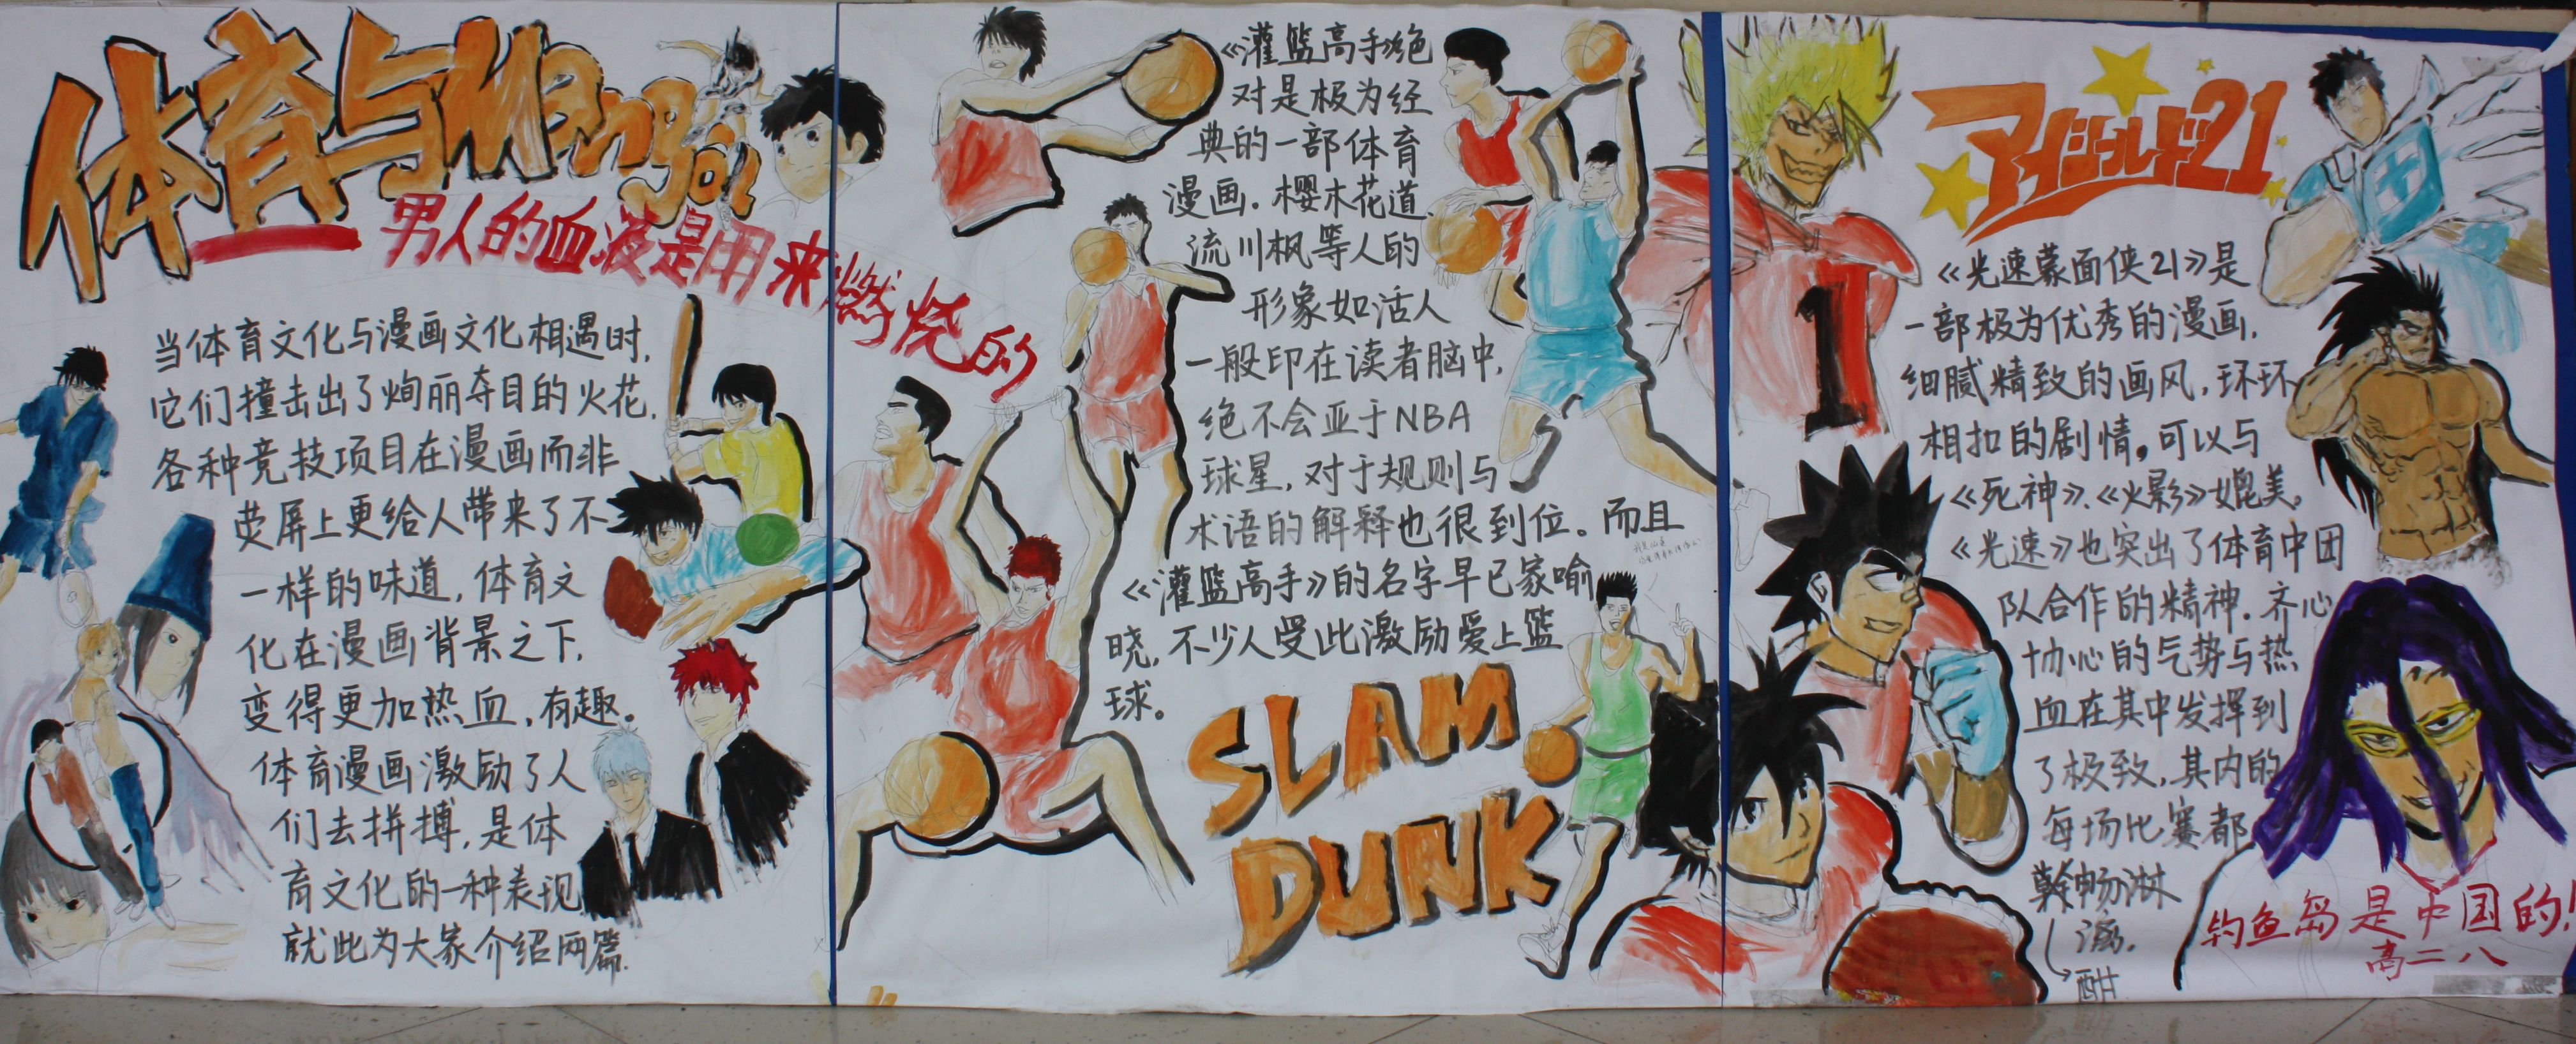 体育与Manga
男人的血液是用来燃烧的
当体育文化与漫画文化相遇时,
它们撞击出了炯丽夺目的火花,
各种竞技项目在漫画而非
荧屏上更给人带来了不
一样的味道,体育文
化在漫画背景之下,
变得更加热血,有趣。
体育漫画激励了人
们去拼搏,是体
育文化的一种表现
就此为大家介绍两篇.
《灌篮高手》绝
对是极为经
典的一部体育
漫画.樱木花道、
流川枫等人的
形象如活人
一般印在读者脑中,
绝不会亚于NBA
球星,对于规则与
术语的解释也很到位。而且
《灌篮高手》的名字早已家喻
晓,不少人受此激励爱上篮
球。
SLAM
DUNK
アイシールド21
《光速蒙面侠21》是
一部极为优秀的漫画,
细腻精致的画风,环环
相扣的剧情。可以与
《死神》、《火影》媲美。
《光速》也突出了体育中团
队合作的精神.齐心
协心的气势与热
血在其中发挥到
了极致,其内的
每场比赛都
畅淋
漓.
酣
1
钓鱼岛是中国的!
高二八